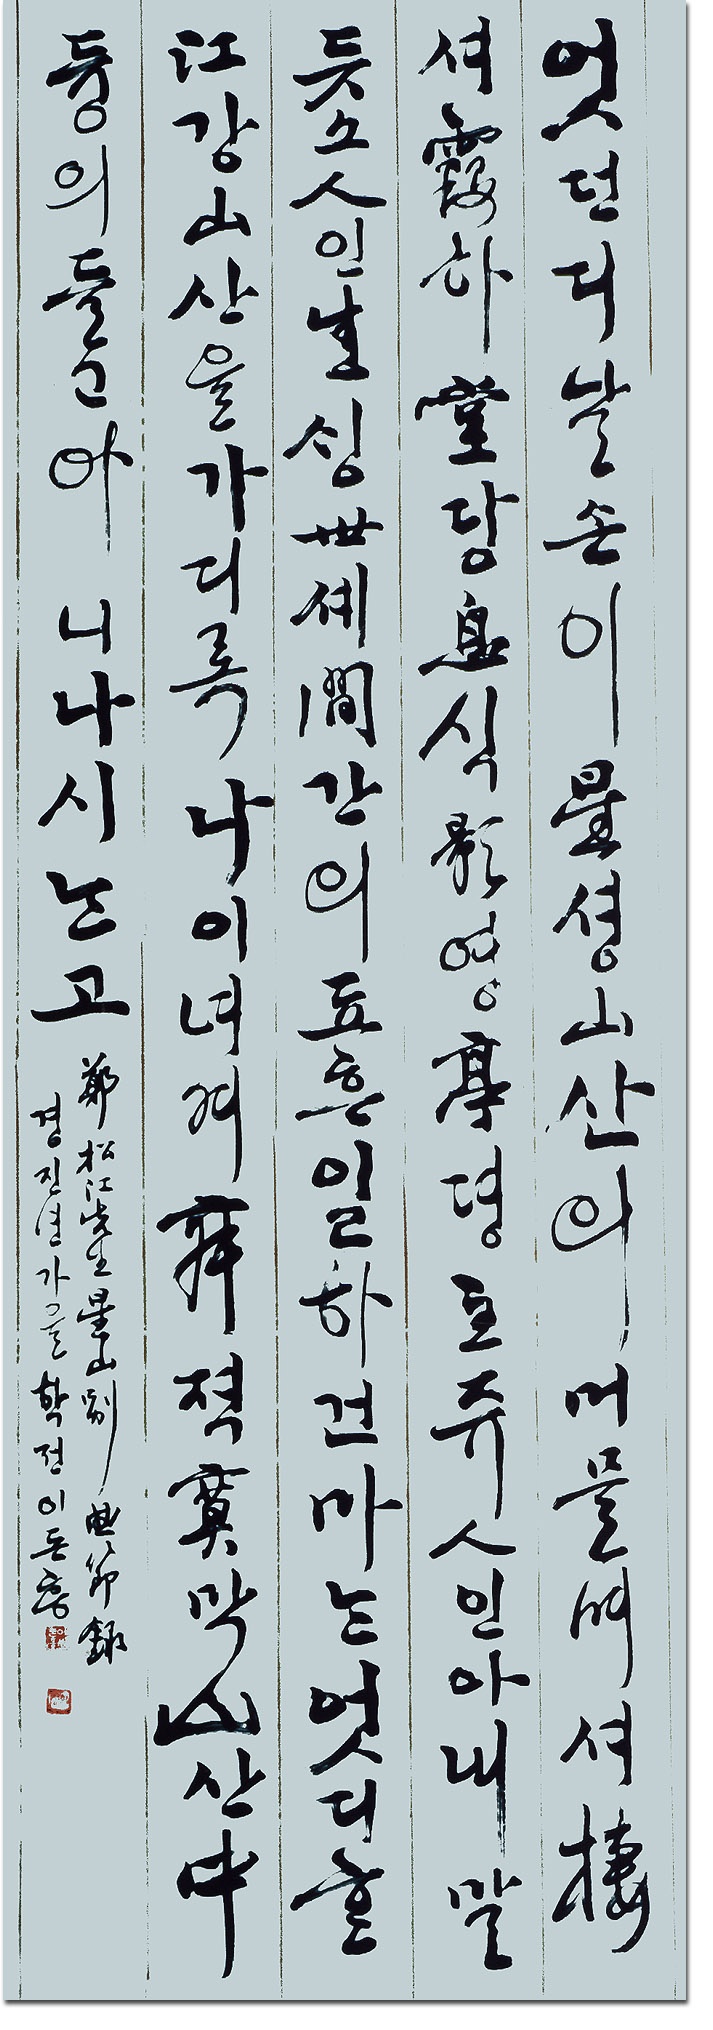 엇던디날손이星셩山산의머믈며셔棲
셔霞하堂당息식影영亭뎡主쥬人인아내말
듯소人인生싱世셰間간의됴흔일하건마는엇디흔
江강山산을가디록나이녀겨寂적寞막山산中
듕의들고아니나시는고
鄭松江先生星山別曲節錄
경진년가을학정이돈흥